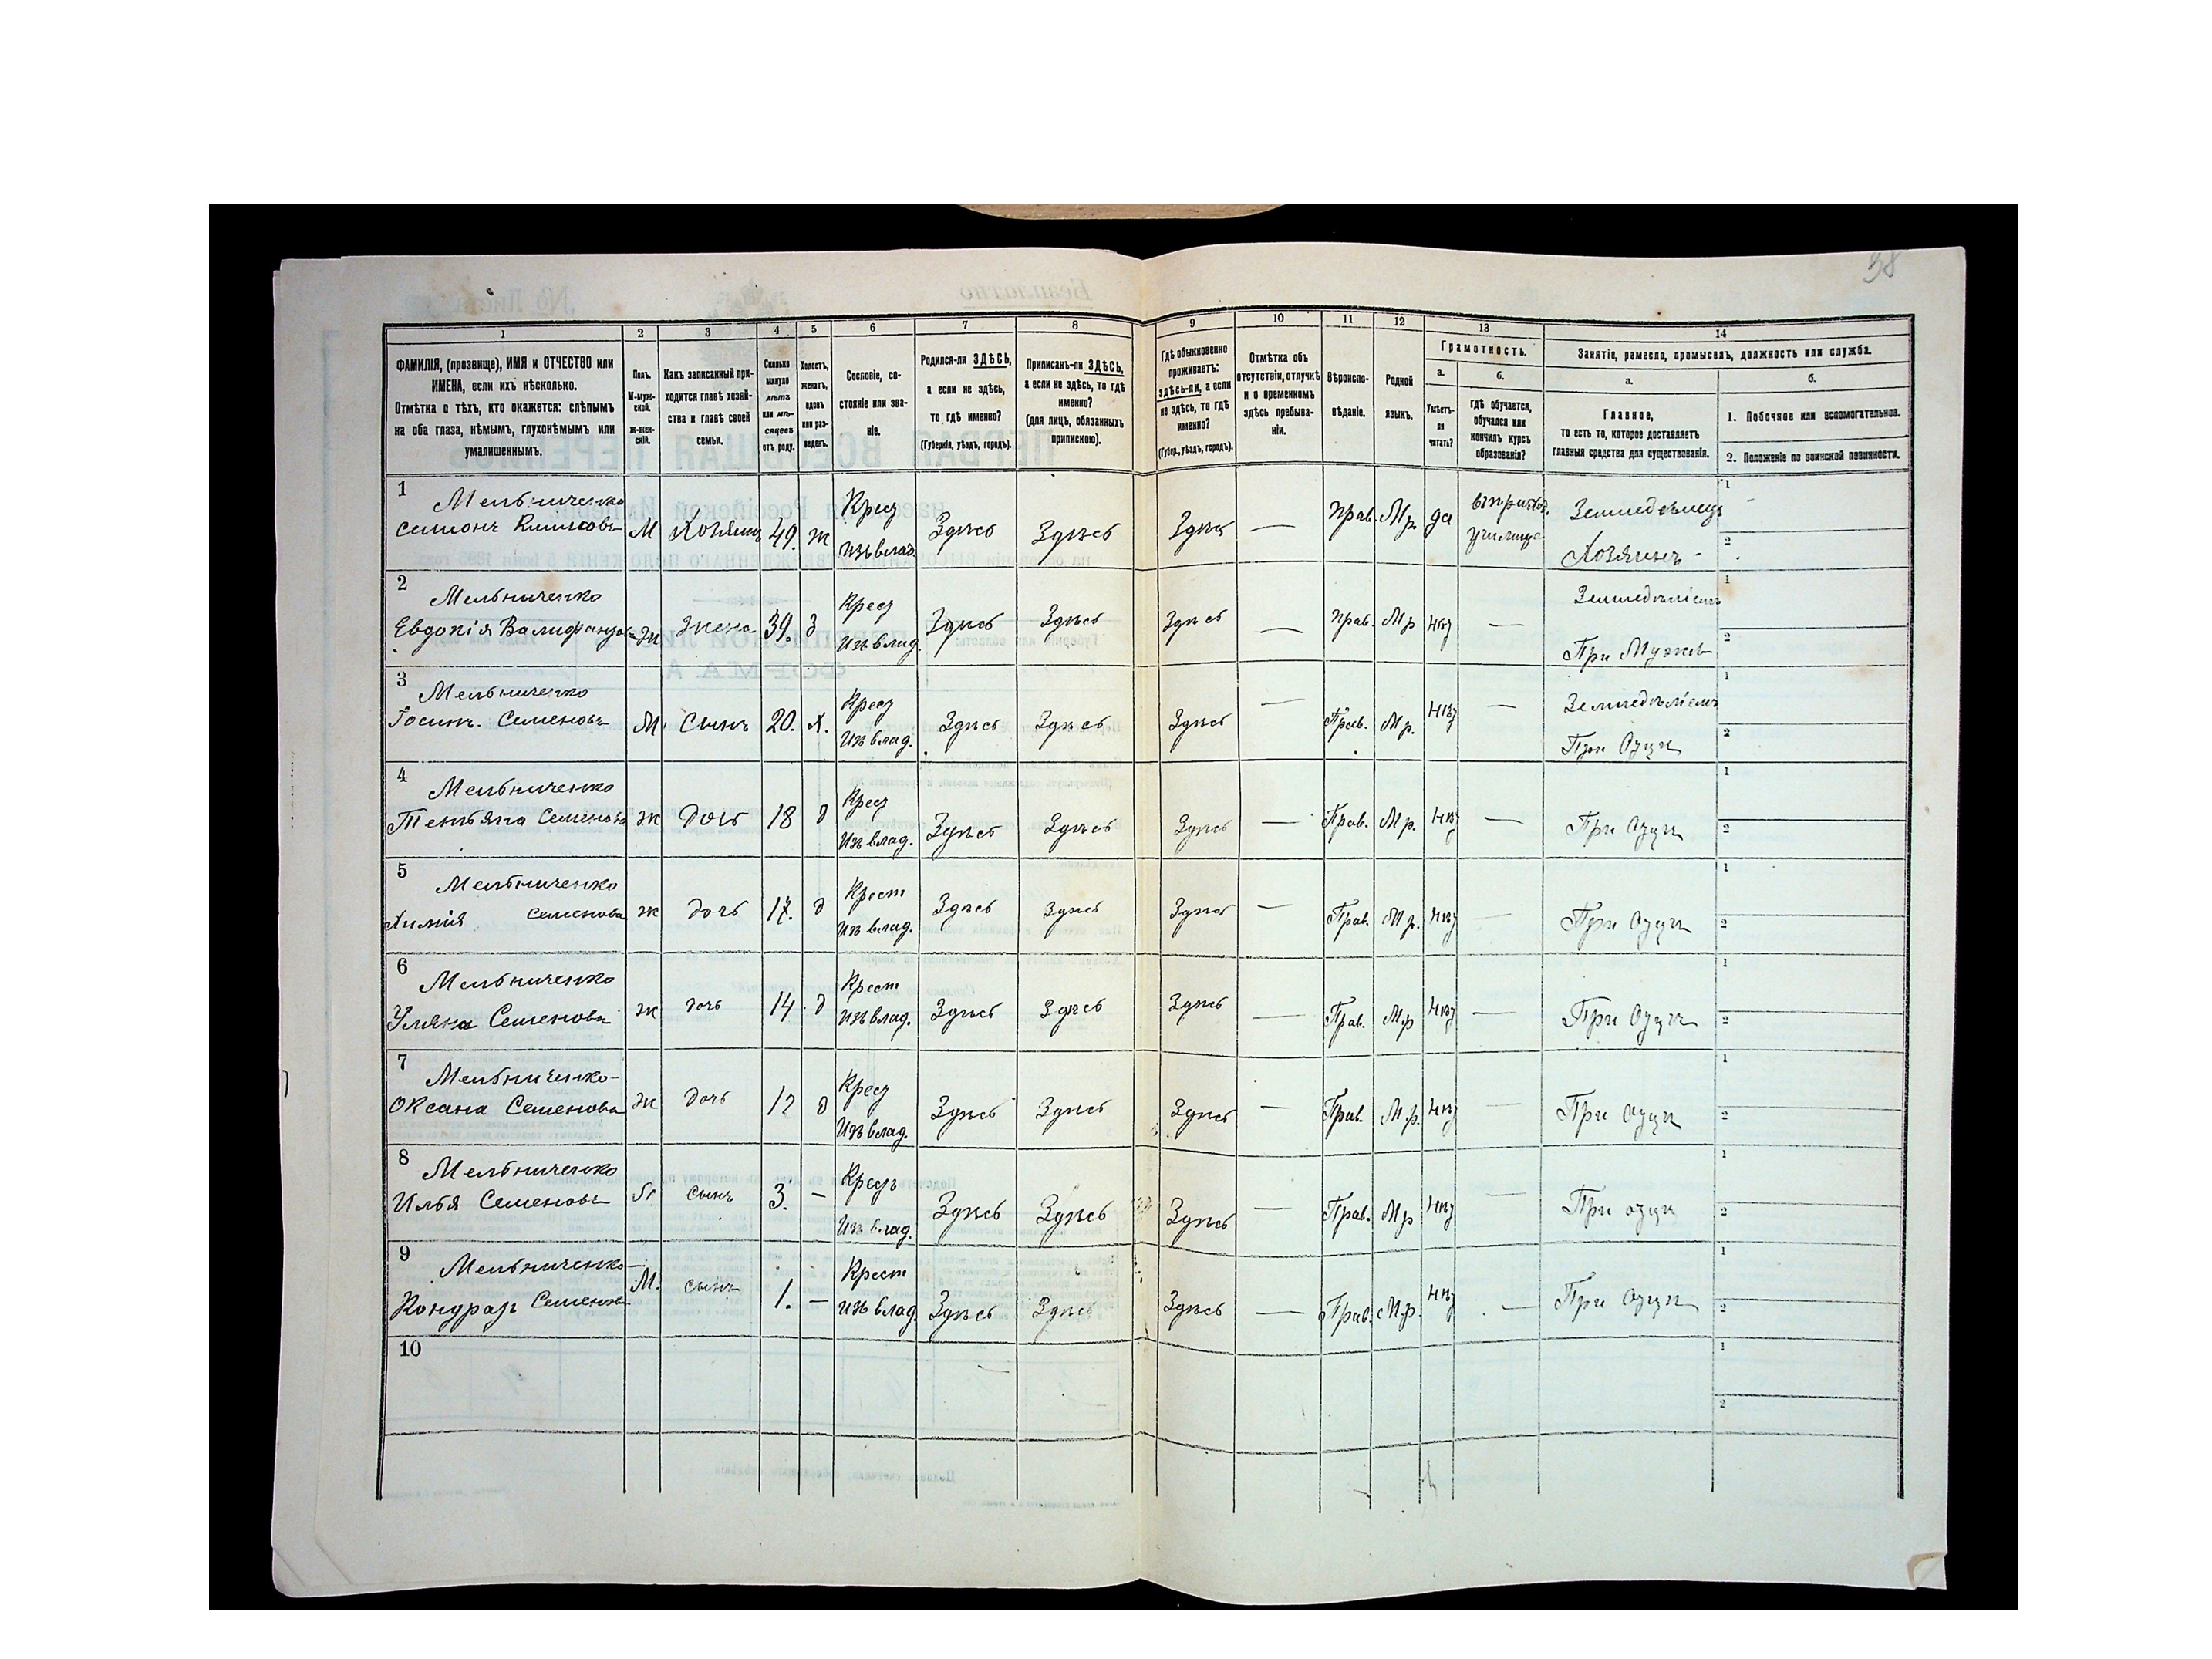 38
1 2 3 4 5 6 7 8 9 10 11 12 13 14
ФАМИЛІЯ, (прозвище), ИМЯ и ОТЧЕСТВО или
ИМЕНА, если ихъ нѣсколько.
Отмѣтка о тѣхъ, кто окажется: слѣпымъ
на оба глаза, нѣмымъ, глухонѣмымъ или
умалишеннымъ.
Полъ.
М-муж-
ской.
Ж-жен-
скій.
Какъ записанный при-
ходится главѣ хозяй-
ства и главѣ своей
семьи.
Сколько
минуло
лѣтъ
или мѣ-
сяцевъ
отъ роду.
Холостъ,
женатъ,
вдовъ
или раз-
веденъ.
Сословіе, со-
стояніе или зва-
ніе.
Родился-ли ЗДѢСЬ,
а если не здѣсь,
то гдѣ именно?
(Губернія, уѣздъ, городъ).
Приписанъ-ли ЗДѢСЬ,
а если не здѣсь, то гдѣ
именно?
(для лицъ, обязанныхъ
припискою).
Гдѣ обыкновенно
проживаетъ:
здѣсь-ли, а если
не здѣсь, то гдѣ
именно?
(Губер., уѣздъ, городъ).
Отмѣтка объ
отсутствіи, отлучкѣ
и о временномъ
здѣсь пребыва-
ніи.
Вѣроиспо-
вѣданіе.
Родной
языкъ.
Грамотность.
а.
Умѣетъ-
ли
читать?
б.
Гдѣ обучается,
обучался или
кончилъ курсъ
образованія?
Занятіе, ремесло, промыселъ, должность или служба.
а.
Главное,
то есть то, которое доставляетъ
главныя средства для существованія.
б.
1. Побочное или вспомогательное.
2. Положеніе по воинской повинности.
1 Мельниченко Крест
М Хозяинъ 49. ж изъ влад. Здѣсь Здѣсь Здѣсь — Прав. Мр. да училище Земледѣлецъ
Хозяинъ
2 Мельниченко Крест Земледѣліемъ
Евдокія ж жена 39. з Изъ влад. Здѣсь Здѣсь Здѣсь — Прав. Мр нѣт —
При Мужѣ
3 Мельниченко Крест Земледѣліемъ
Семеновъ М. Сынъ 20. х. Изъ влад. Здѣсь Здѣсь Здѣсь — Прав. Мр. нѣт —
При Отцѣ
4 Мельниченко Крест
Семенова ж дочь 18 д Изъ влад. Здѣсь Здѣсь Здѣсь — Прав. Мр. нѣт — При Отцѣ
5 Мельниченко Крест
Химія Семенова ж дочь 17. д Изъ влад. Здѣсь Здѣсь Здѣсь — Прав. Мр. нѣт — При Отцѣ
6 Мельниченко Крест
Уляна Семенова ж дочь 14 д Изъ влад. Здѣсь Здѣсь Здѣсь — Прав. Мр нѣт — При Отцѣ
7 Мельниченко Крест
Оксана Семенова ж дочь 12 д Изъ влад. Здѣсь Здѣсь Здѣсь — Прав. Мр. нѣт — При отцѣ
8 Мельниченко Крестъ
Илья Семеновъ М сынъ 3. — Изъ влад. Здѣсь Здѣсь Здѣсь — Прав. Мр нѣт — При отцѣ
9 Мельниченко Крест
Кондрат Семенов М. сынъ 1. — изъ влад. Здѣсь Здѣсь Здѣсь — Прав. Мр. нѣт — При Отцѣ
10